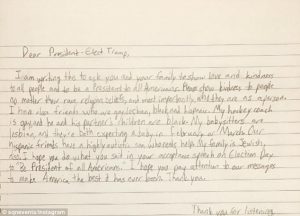 Dear President-Elect Trump,
I am writing this to ask you and your family to show love and kindness
to all people and to be a President to all Americans. Please show kindness to people
no matter their race, religion, beliefs, and most importantly, who they are as a person.
I have close friends who are
is gay and he and his partner's children are black. My babysitters are
lesbian, and they're both expecting a baby in February or March. Our
hispanic friends have a highly autistic son who needs help. My family is Jewish,
too. I hope you do what you said in your acceptance speech on Election Day
to "Be President of all Americans". I hope you pay attention to our messages
to make America the best it has ever been. Thank you.
Thank you for listening,
sqnevents/Instagram